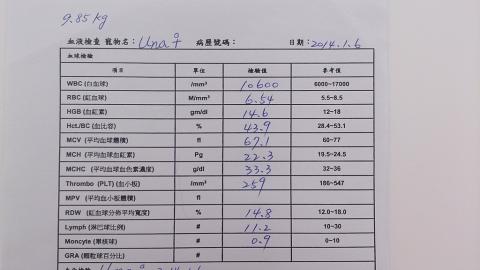 9.85 kg
血液檢查 寵物名： Una ♀ 病歷號碼： 日期：2014.1.6
血球檢驗
項目 單位 檢驗值 參考值
WBC (白血球) /mm³ 10600 6000~17000
RBC (紅血球) M/mm³ 6.54 5.5~8.5
HGB (血紅素) gm/dl 14.6 12~18
Hct./BC (血比容) % 43.9 28.4~53.1
MCV (平均血球體積) fl 67.1 60~77
MCH (平均血球血紅素) Pg 22.3 19.5~24.5
MCHC (平均血球血色素濃度) g/dl 33.3 32~36
Thrombo (PLT) (血小板) /mm³ 259 186~547
MPV (平均血小板體積) fl
RDW (紅血球分佈平均寬度) % 14.8 12.0~18.0
Lymph (淋巴球比例) # 11.2 10~30
Moncyte (單核球) # 0.9 0~10
GRA (顆粒球百分比) #